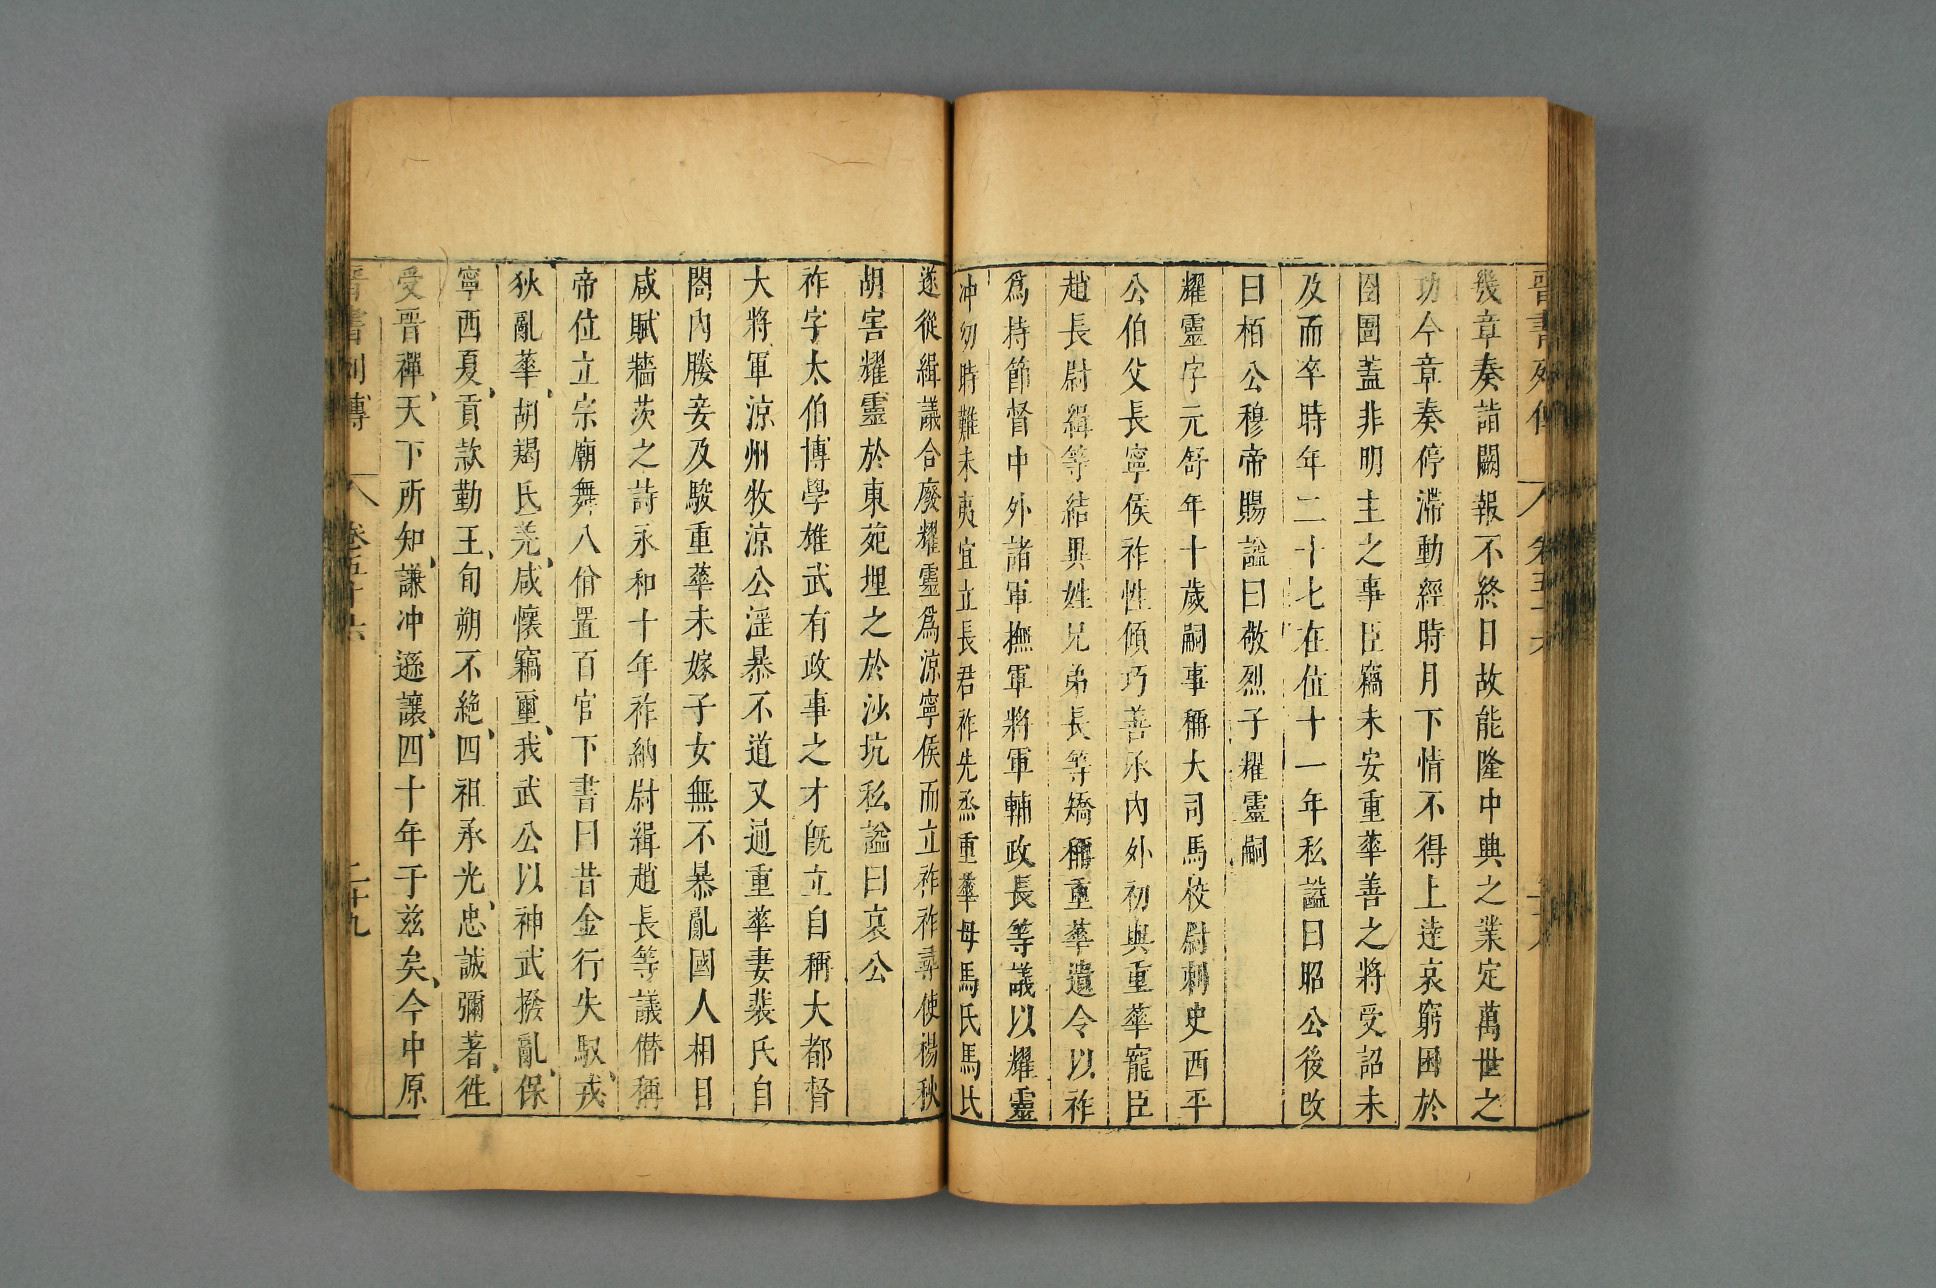 晉書列傳 卷五十六
幾章奏詣闕報不終日故能隆中興之業定萬世之
功今章奏停滯動經時月下情不得上達哀窮困於
囹圄蓋非明主之事臣竊未安重華善之將受詔未
及而卒時年二十七在位十一年私謚曰昭公後改
曰栢公穆帝賜謚曰敬烈子耀靈嗣
耀靈字元舒年十歲嗣事稱大司馬校尉刺史西平
公伯父長寧侯祚性傾巧善承內外初與重華寵臣
趙長尉緝等結異姓兄弟長等矯稱重華遺令以祚
爲持節督中外諸軍撫軍將軍輔政長等議以耀靈
冲幼時難未夷宜立長君祚先烝重華母馬氏馬氏
遂從緝議合廢耀靈爲涼寧侯而立祚祚尋使楊秋
胡害耀靈於東苑埋之於沙坑私謚曰哀公
祚字太伯博學雄武有政事之才旣立自稱大都督
大將軍涼州牧涼公淫暴不道又通重華妻裴氏自
閤內媵妾及駿重華未嫁子女無不暴亂國人相目
咸賦牆茨之詩永和十年祚納尉緝趙長等議僭稱
帝位立宗廟舞八佾置百官下書曰昔金行失馭戎
狄亂華胡羯氐羌咸懷竊璽我武公以神武撥亂保
寧西夏貢款勤王旬朔不絕四祖承光忠誠彌著徃
受晉禪天下所知謙冲遜讓四十年于兹矣今中原
晉書列傳 卷五十六 二十九